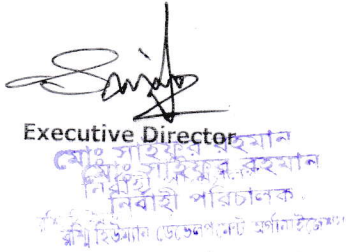 Executive Director
মোঃ সাইফুর রহমান
মোঃ সাইফুর রহমান
নির্বাহী
নির্বাহী পরিচালক
হিউম্যান ডেভেলপমেন্ট অর্গানাইজেশন